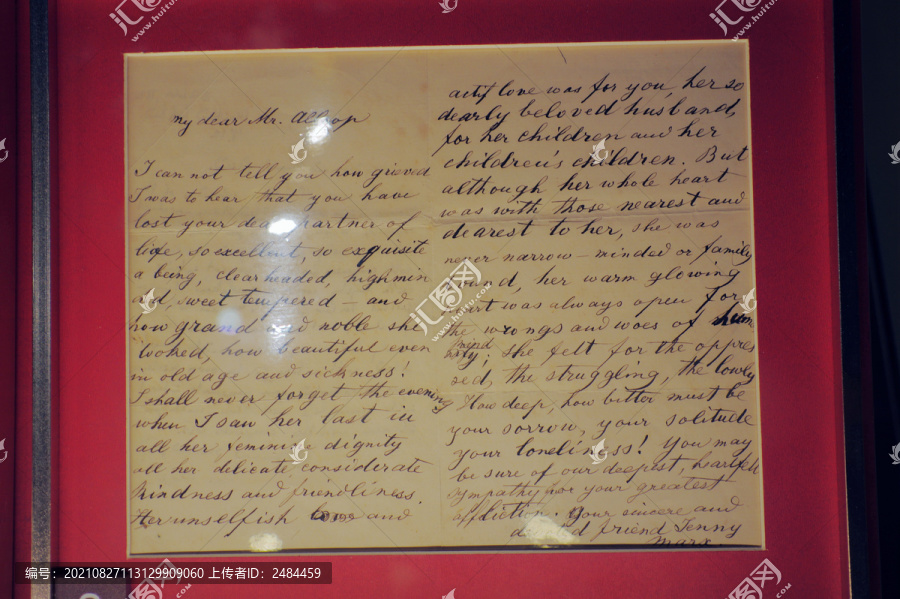 my dear Mr. Allsop
I can not tell you how grieved
I was to hear that you have
lost your dear partner of
life, so excellent, so exquisite
a being, clear headed, high min
ded, sweet tempered – and
how grand and noble she
looked, how beautiful even
in old age and sickness!
I shall never forget the evening
when I saw her last in
all her feminine dignity
all her delicate considerate
kindness and friendliness.
Her unselfish and
love was for you, her so
dearly beloved husband,
for her children and her
children's children. But
although her whole heart
was with those nearest and
dearest to her, she was
never narrow-minded or family
mind, her warm glowing
heart was always open for
the wrongs and woes of hum
; she felt for the oppres
sed, the struggling, the lowly
How deep, how bitter must be
your sorrow, your solitude
your loneliness! You may
be sure of our deepest, heartfelt
sympathy for your greatest
affliction. Your sincere and
friend Jenny
Marx
编号: 20210827113129909060 上传者ID: 2484459
汇图网
www.huitu.com